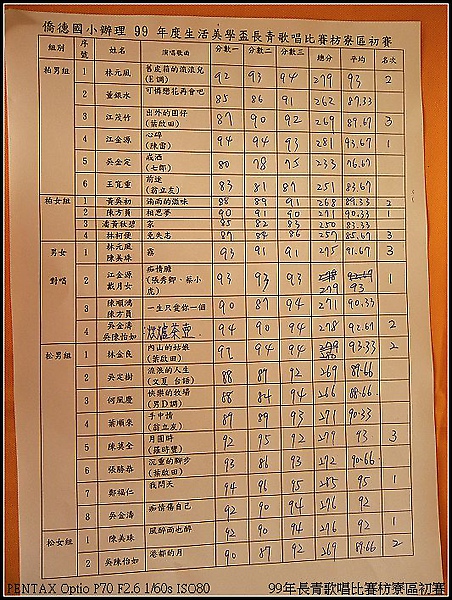 僑德國小辦理 99 年度生活美學盃長青歌唱比賽枋寮區初賽
組別 序號 姓名 演唱歌曲 分數一 分數二 分數三 總分 平均 名次
柏男組 1 林元風 舊皮箱的流浪兒(E調) 92 93 94 279 93 2
2 董銀水 可憐戀花再會吧 85 86 91 262 87.33
3 江茂竹 出外的囝仔(葉啟田) 87 90 92 269 89.67 3
4 江金源 心碎(陳雷) 94 94 93 281 93.67 1
5 吳金定 戒酒(七郎) 80 78 75 233 76.67
6 王寬重 前途(翁立友) 83 81 87 251 83.67
柏女組 1 黃吳初 滴雨的滋味 88 89 91 268 89.33 2
2 陳方員 相思夢 90 91 90 271 90.33 1
3 潘黃秋碧 家 85 82 83 250 83.33
4 林柯葆 免失志 87 84 86 257 85.67 3
男女對唱 1 林元風 陳美珠 霧 93 91 91 275 91.67 3
2 江金源 戴月女 痴情膽(張秀卿、蔡小虎) 93 93 93 279 93 1
3 陳順鴻 陳方員 一生只愛你一個 90 87 94 271 90.33
4 吳金濤 吳陳怡如 94 90 94 278 92.67 2
松男組 1 林金良 內山的姑娘(葉啟田) 92 94 94 93.33 2
2 吳定樹 流浪的人生(文夏 台語) 88 89 92 269 89.66
3 何風慶 快樂的牧場(男D調) 88 84 94 266 88.66
4 葉順來 手中情(翁立友) 89 89 93 271 90.33
5 陳英全 月圓時(羅時豐) 92 95 92 279 93 3
6 張勝恭 沉重的腳步(葉啟田) 93 86 93 272 90.66
7 鄭福仁 我問天 94 96 95 285 95 1
8 吳金濤 痴情傷自己 92 90 94 276 92
松女組 1 陳美珠 風醉雨也醉 92 90 94 276 92 1
2 吳陳怡如 港都的月 90 87 92 269 89.66 2
PENTAX Optio P70 F2.6 1/60s ISO80
99年長青歌唱比賽枋寮區初賽